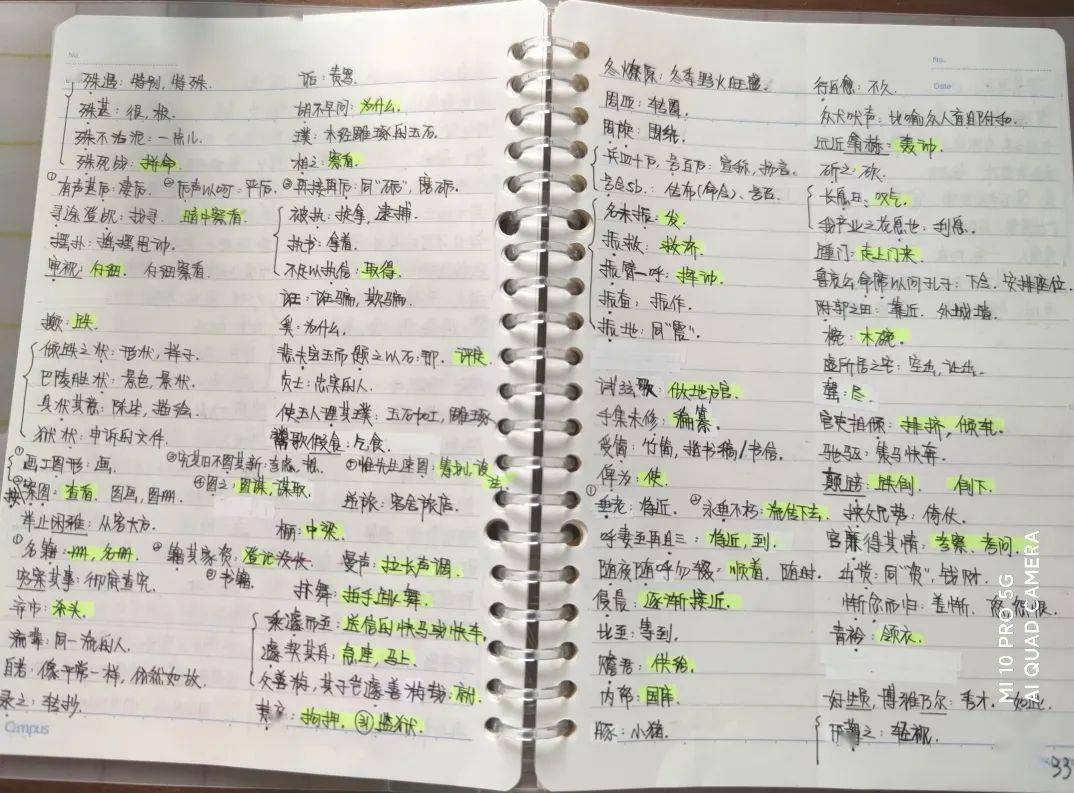 No.
殊遇：特别，特殊.
诟：责骂.
殊甚：很，极.
胡不早同：为什么.
殊不治泥：一点儿.
璞：未经雕琢的玉石.
殊死战：拼命.
相之：察看.
寻涂登帆：找寻. 暗中察看.
被执：挟拿，逮捕.
执书：拿着.
审视：仔细. 仔细察看.
不足以执信：取得.
诳：诳骗，欺骗.
撷：跌.
奚：为什么.
倾跌之状：形状，样子.
悲夫宝玉而题之以石：评定.
巴陵胜状：景色，景状.
贞士：忠实的人.
具状其意：陈述，描绘.
使玉人理其璞：玉石加工，雕琢
狱状：申诉的文件.
①画工图形：画.
②案图：查看. 图画，图册.
④图之：图谋，谋取.
逆旅：客舍旅店.
举止闲雅：从容大方.
栭：中梁.
①名籍：册，名册.
②籍其家资：登记没收.
③书籍.
曼声：拉长声调.
穷案其事：彻底查究.
抃舞：拍手跳舞.
弃市：杀头.
乘遽而至：送信的快马或快车.
流辈：同一流的人.
遽契其舟：急速，马上.
自若：像平常一样，仍然如故.
父善游，其子岂遽善游哉：就
录之：轻抄
拘押. 监狱.
Campus
No.
Date
冬爝原：冬季野火旺盛.
行自愈：不久
周匝：轮圈.
众犬吠声：比喻众人盲目附和.
周旋：围绕.
远近翕赫：轰动.
兵四十万，号百万：宣称，扬言.
斫之：砍.
号令sb.：传布(命令)、号召.
长息曰：叹气.
名未振：发.
利息.
振救：救济.
踵门：走上门来.
振臂一呼：挥动.
鲁哀公命席以问孔子：下令，安排座位.
振奋：振作.
附郭之田：靠近，外城墙.
振地：同“震”.
椀：木碗.
虚所居之宅：空出，让出.
试弦歌：做地方官.
罄：尽.
手集未修：编纂.
官吏相倾：排挤，倾轧.
受简：竹简，指书稿/书信.
驰驱：策马快奔.
俾为：使.
颠踣：跌倒. 倒下.
①垂老：将近.
②永垂不朽：流传下去.
倚仗.
呼妻至再且三：将近，到.
官廉得其情：考察、考问.
随夜随呼勿辍：顺着，随时.
出赀：同“资”，钱财.
侵晨：逐渐接近.
惭忿而归：羞惭.
比至：等到.
青衿：领衣.
赡君：供给.
内帑：国库.
豚：小猪.
轻视.
33
MI 10 PRO 5G
AI QUAD CAMERA